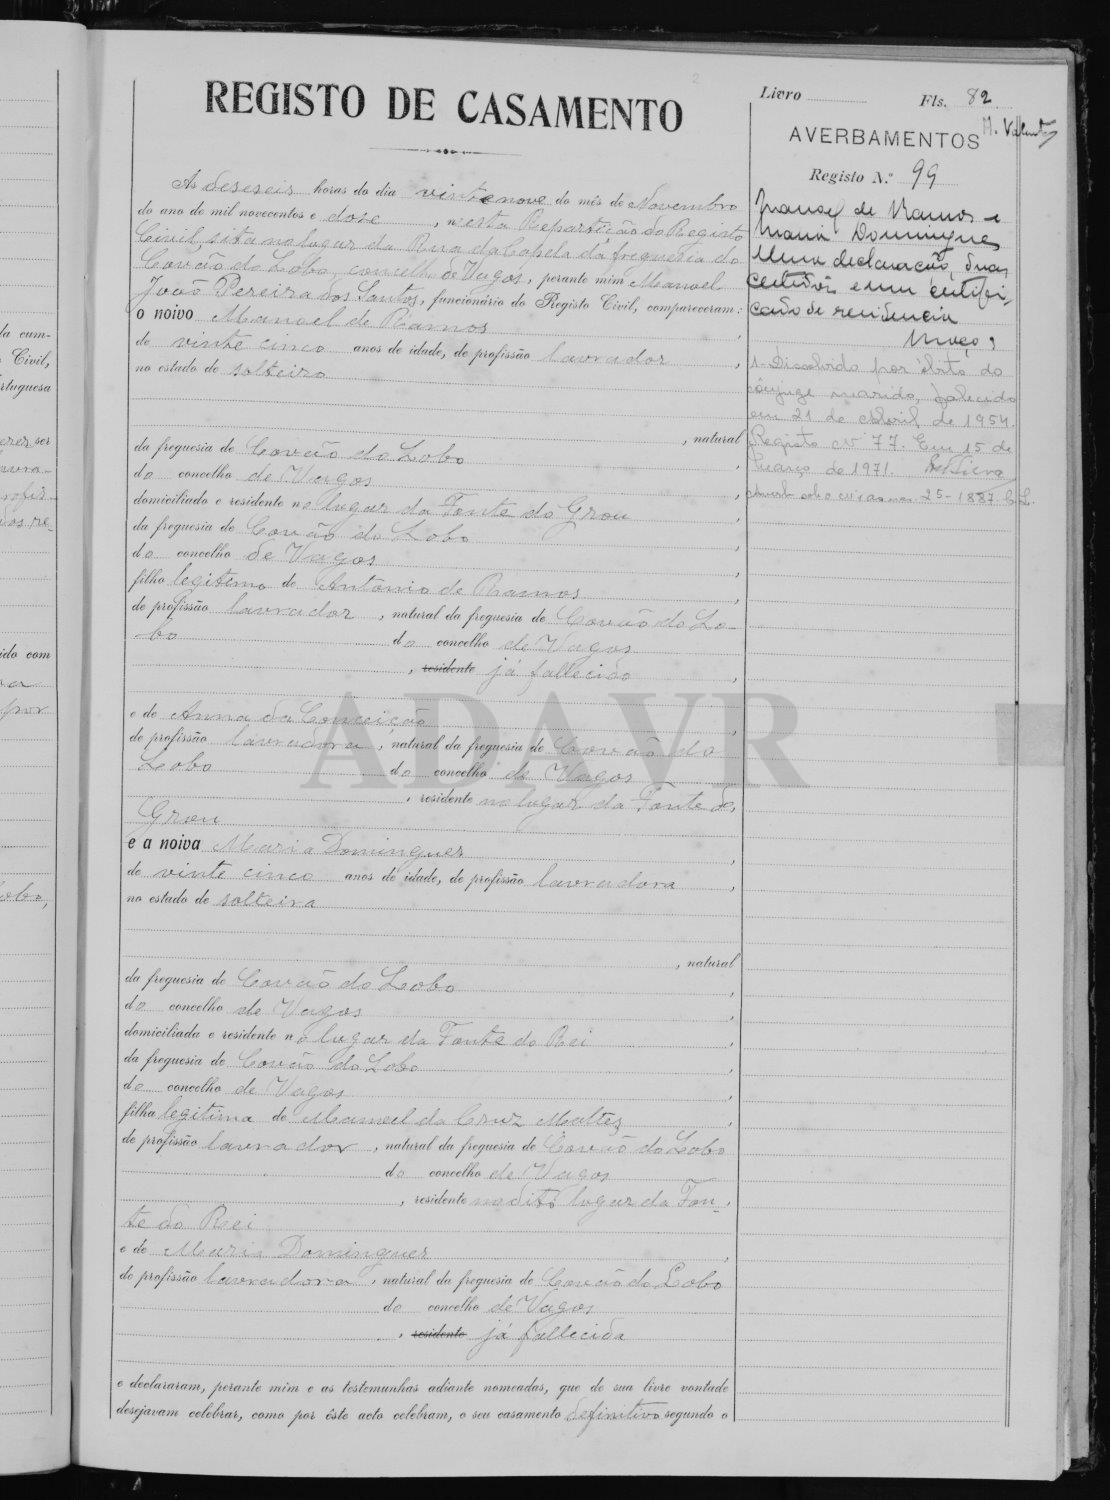 2
REGISTO DE CASAMENTO
Livro
Fls. 82
AVERBAMENTOS
Registo N.º 99
Manoel de Ramos e
Maria Domingues
Uma declaração, duas
certidões e um certifi-
cado de residencia
Maço 1
1-Dissolvido por óbito do
cônjuge marido, falecido
em 21 de Abril de 1954.
Registo nº 77. Em 15 de
Março de 1971.
25-1887
As deseseis horas do dia vinte nove do mês de Novembro
do ano de mil novecentos e doze, nesta Repartição do Registo
Civil, sita no lugar da Rua da Capela da freguesia do
Covão do Lobo, concelho de Vagos, perante mim Manoel
João Pereira dos Santos, funcionário do Registo Civil, compareceram:
o noivo Manoel de Ramos
de vinte cinco anos de idade, de profissão lavrador,
no estado de solteiro
, natural
da freguesia de Covão do Lobo,
do concelho de Vagos,
domiciliado e residente no lugar da Fonte do Grou,
da freguesia de Covão do Lobo,
do concelho de Vagos,
filho legitemo de Antonio de Ramos,
de profissão lavrador, natural da freguesia de Covão do Lo-
bo do concelho de Vagos
, residente já fallecido,
e de Anna da Conceição,
de profissão lavradora, natural da freguesia de Covão do
Lobo do concelho de Vagos
, residente no lugar da Fonte do,
Grou
e a noiva Maria Domingues,
de vinte cinco anos de idade, de profissão lavradora,
no estado de solteira
, natural
da freguesia de Covão do Lobo,
do concelho de Vagos,
domiciliada e residente no lugar da Fonte do Rei,
da freguesia de Covão do Lobo,
do concelho de Vagos,
filha legitima de Manoel da Cruz Maltez,
de profissão lavrador, natural da freguesia de Covão do Lobo
do concelho de Vagos
, residente no dito lugar da Fon-,
te do Rei
e de Maria Domingues,
de profissão lavradora, natural da freguesia de Covão do Lobo
do concelho de Vagos
, residente já fallecida
e declararam, perante mim e as testemunhas adiante nomeadas, que de sua livre vontade
desejavam celebrar, como por êste acto celebram, o seu casamento definitivo segundo o
ADAVR
da cum-
Civil,
rtuguesa
ido com
por